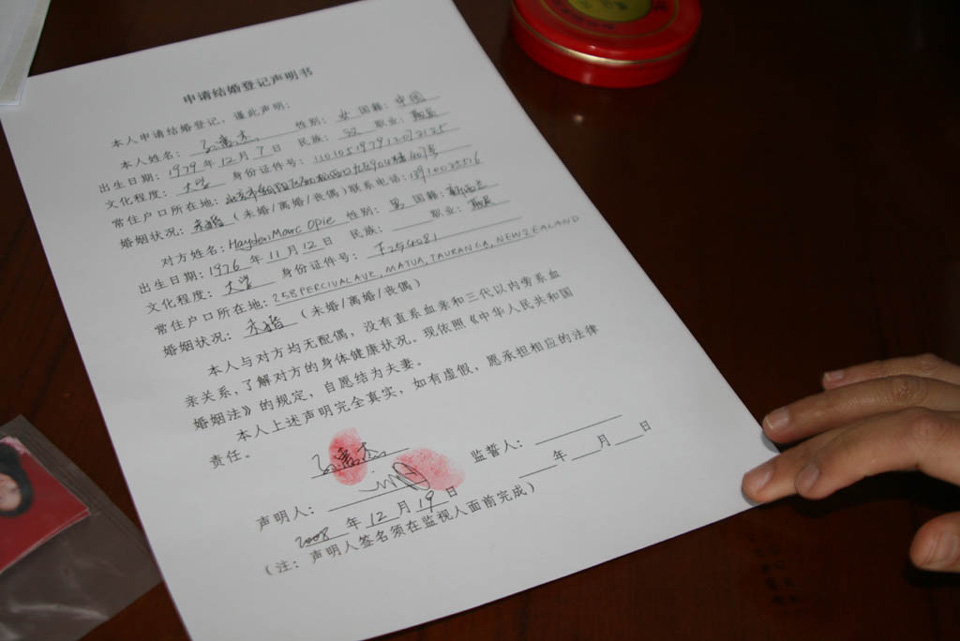 申请结婚登记声明书
本人申请结婚登记，谨此声明：
本人姓名： 性别：女 国籍：中国
出生日期：1979年12月7日 民族：汉 职业：职员
文化程度：大学 身份证件号：
常住户口所在地：
婚姻状况：未婚（未婚/离婚/丧偶）联系电话：
对方姓名：Hayden Marc Opie 性别：男 国籍：新西兰
出生日期：1976年11月12日 民族： 职业：职员
文化程度：大学 身份证件号：
常住户口所在地：258 PERCIVAL AVE, MATUA, TAURANGA, NEW ZEALAND
婚姻状况：未婚（未婚/离婚/丧偶）
本人与对方均无配偶，没有直系血亲和三代以内旁系血
亲关系，了解对方的身体健康状况。现依照《中华人民共和国
婚姻法》的规定，自愿结为夫妻。
本人上述声明完全真实，如有虚假，愿承担相应的法律
责任。
声明人： 监誓人：
2008年12月19日 年 月 日
（注：声明人签名须在监视人面前完成）